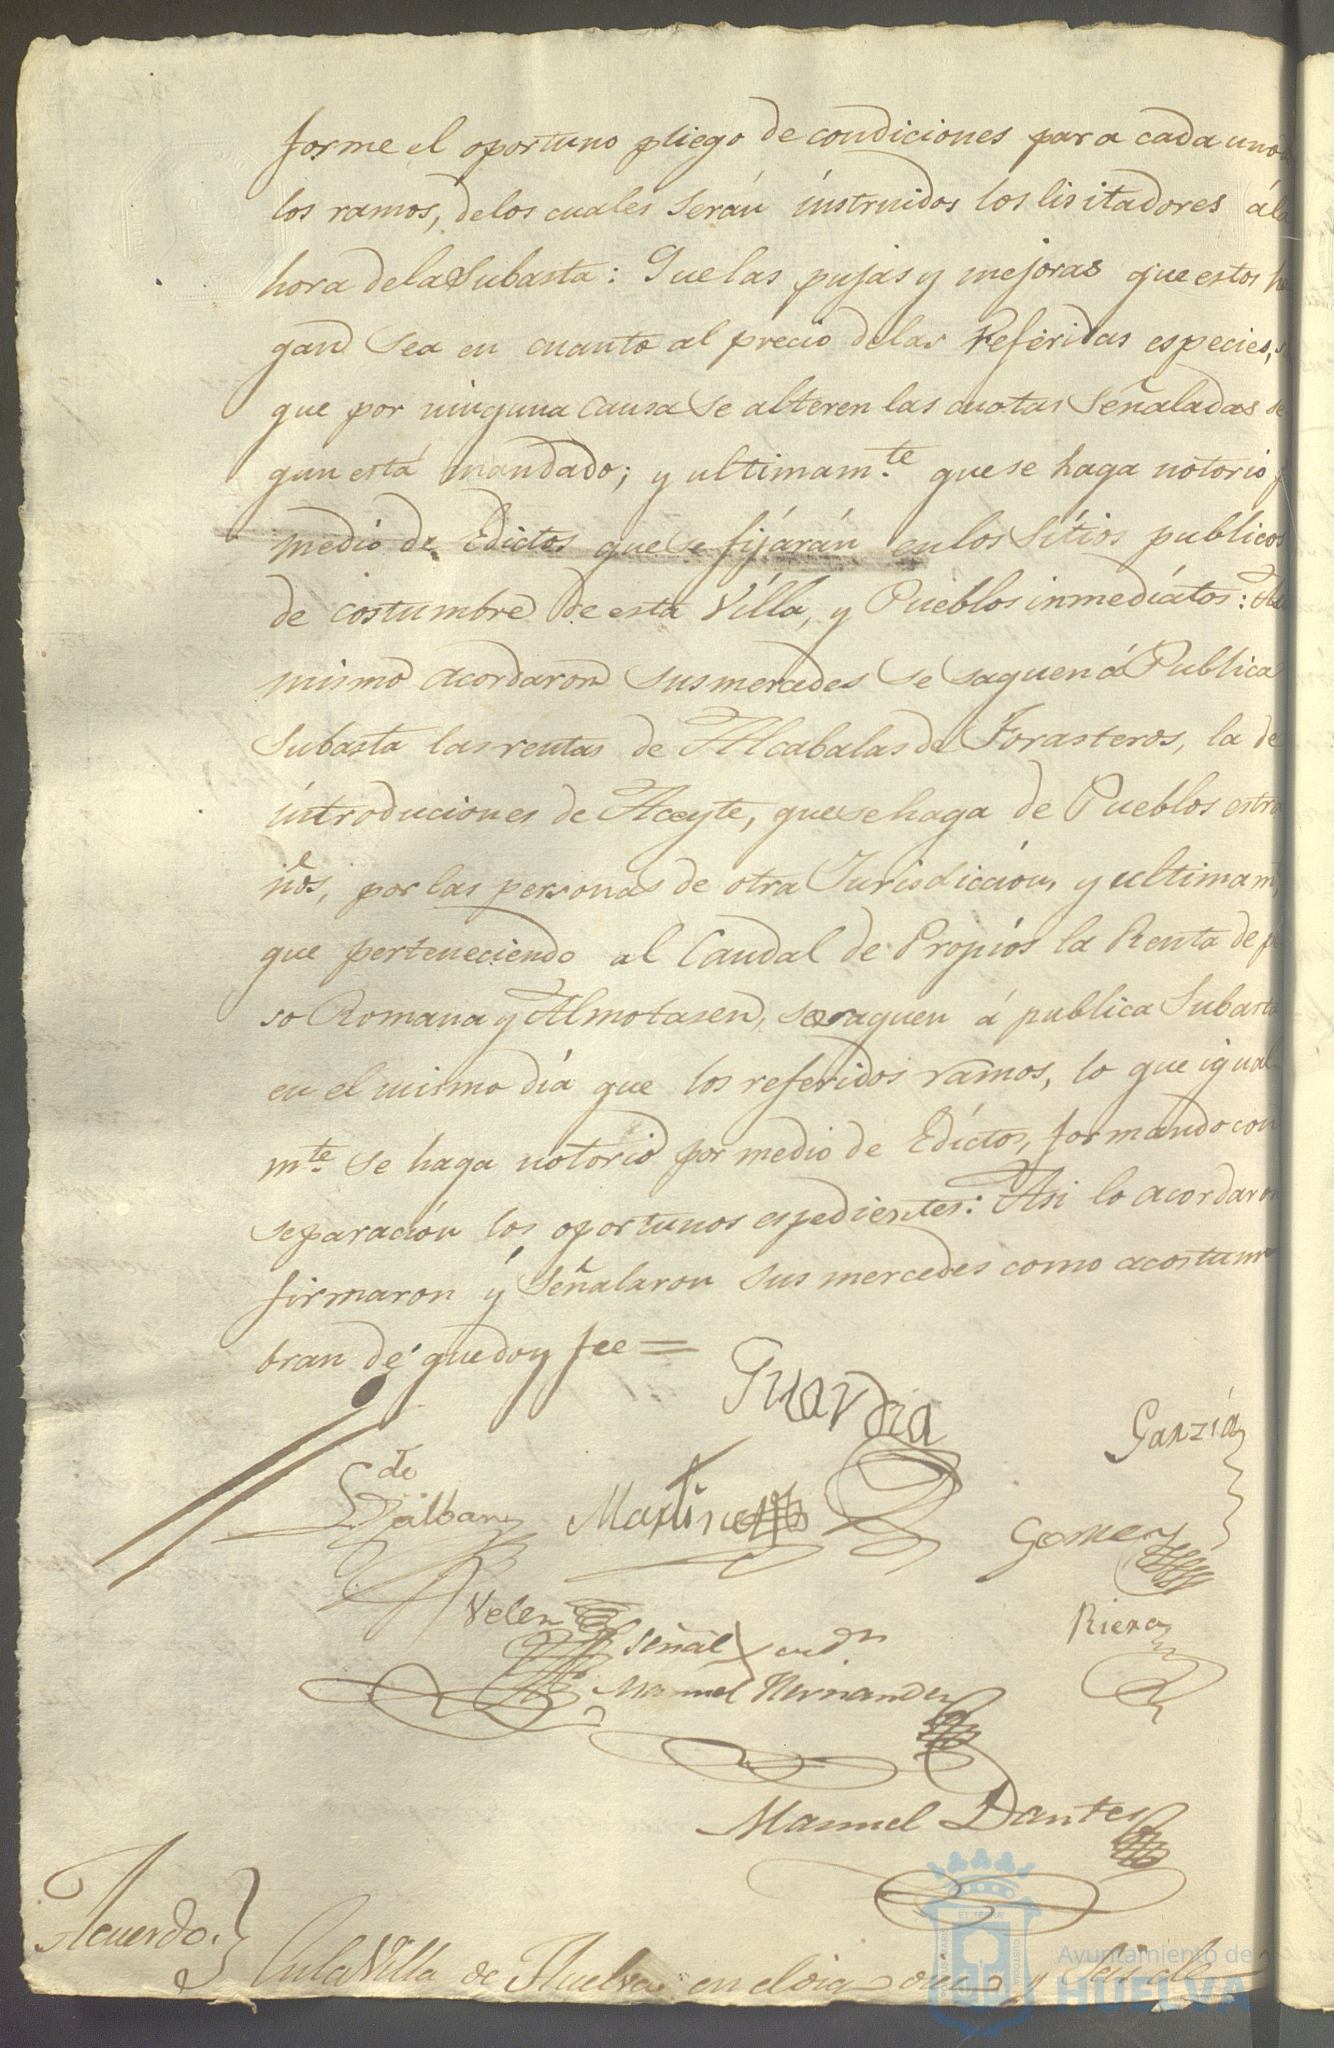 forme el oportuno pliego de condiciones para cada uno
los ramos, de los cuales serán instruidos los lisitadores á la
hora de la Subasta: Que las pujas y mejoras que estos ha
gan sea en cuanto al precio de las referidas especies,
que por ninguna causa se alteren las cuotas señaladas se
gun está mandado; y ultimam.te que se haga notorio
medio de Edictos que se fijárán en los Sítios publicos
de costumbre de esta Villa, y Pueblos inmediátos:
mismo acordaron sus mercedes se saquen á Publica
Subasta las rentas de Alcabalas de Forasteros, la de
introduciones de Aceyte, que se haga de Pueblos estra
ños, por las personas de otra Jurisdiccion, y ultimam
que perteneciendo al Caudal de Propios la Renta de pe
so Romana y Almotasen, se saquen á publica Subasta
en el mismo dia que los referidos ramos, lo que igual
mte. se haga notorio por medio de Edictos, formando con
separacion los oportunos espedientes: Asi lo acordaron
firmaron y señalaron sus mercedes como acostum
bran de que doy fee =
Guardia
Garzia
Martinez
Gomez
Velez
Riera
Señal
Manuel Hernandez
Manuel Dantes
Acuerdo.
En la Villa de Huelva en el dia diez y seis de
Ayuntamiento de
HUELVA